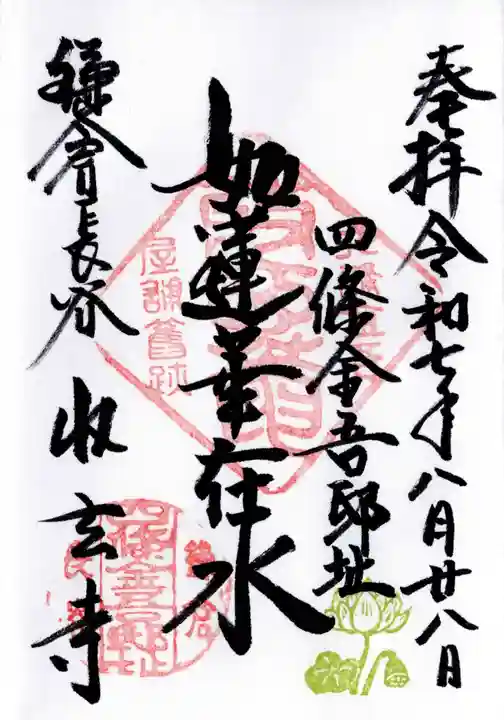 奉拝 令和七年八月廿八日
四條金吾邸址
如蓮華在水
鎌倉長谷 收玄寺
屋舗舊跡